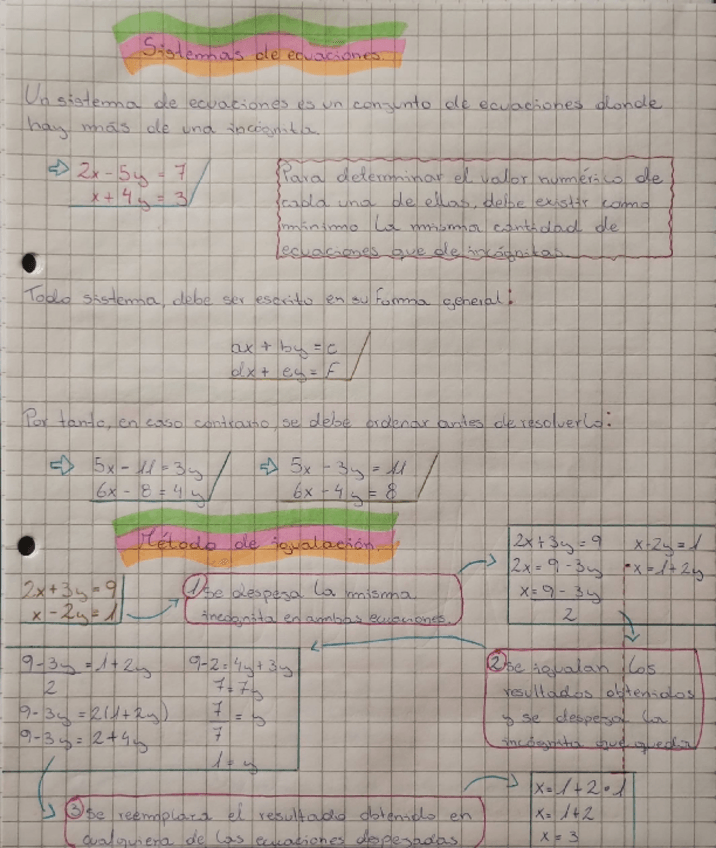 Sistemas de ecuaciones.
Un sistema de ecuaciones es un conjunto de ecuaciones donde
hay más de una incógnita.
⇒ 2x - 5y = 7
x + 4y = 3
Para determinar el valor numérico de
cada una de ellas, debe existir como
mínimo la misma cantidad de
ecuaciones que de incógnitas.
Todo sistema, debe ser escrito en su forma general:
ax + by = c
dx + ey = F
Por tanto, en caso contrario, se debe ordenar antes de resolverlo:
⇒ 5x - 11 = 3y ⇒ 5x - 3y = 11
6x - 8 = 4y 6x - 4y = 8
Método de igualación.
2x + 3y = 9
x - 2y = 1
① Se despeja la misma
incógnita en ambas ecuaciones.
2x + 3y = 9 x - 2y = 1
2x = 9 - 3y • x = 1 + 2y
x = 9 - 3y
2
② Se igualan los
resultados obtenidos
y se despeja la
incógnita que queda
9 - 3y = 1 + 2y 9 - 2 = 4y + 3y
2 7 = 7y
9 - 3y = 2(1 + 2y) 7 = y
9 - 3y = 2 + 4y 7
1 = y
③ Se reemplaza el resultado obtenido en
cualquiera de las ecuaciones despejadas
x = 1 + 2 • 1
x = 1 + 2
x = 3